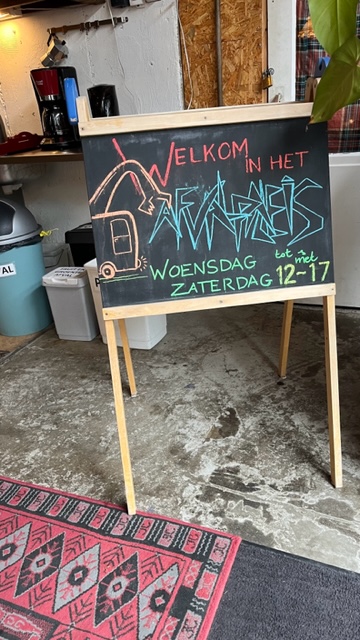 WELKOM
IN HET
AFVALPALEIS
WOENSDAG tot & met
ZATERDAG 12~17
AL